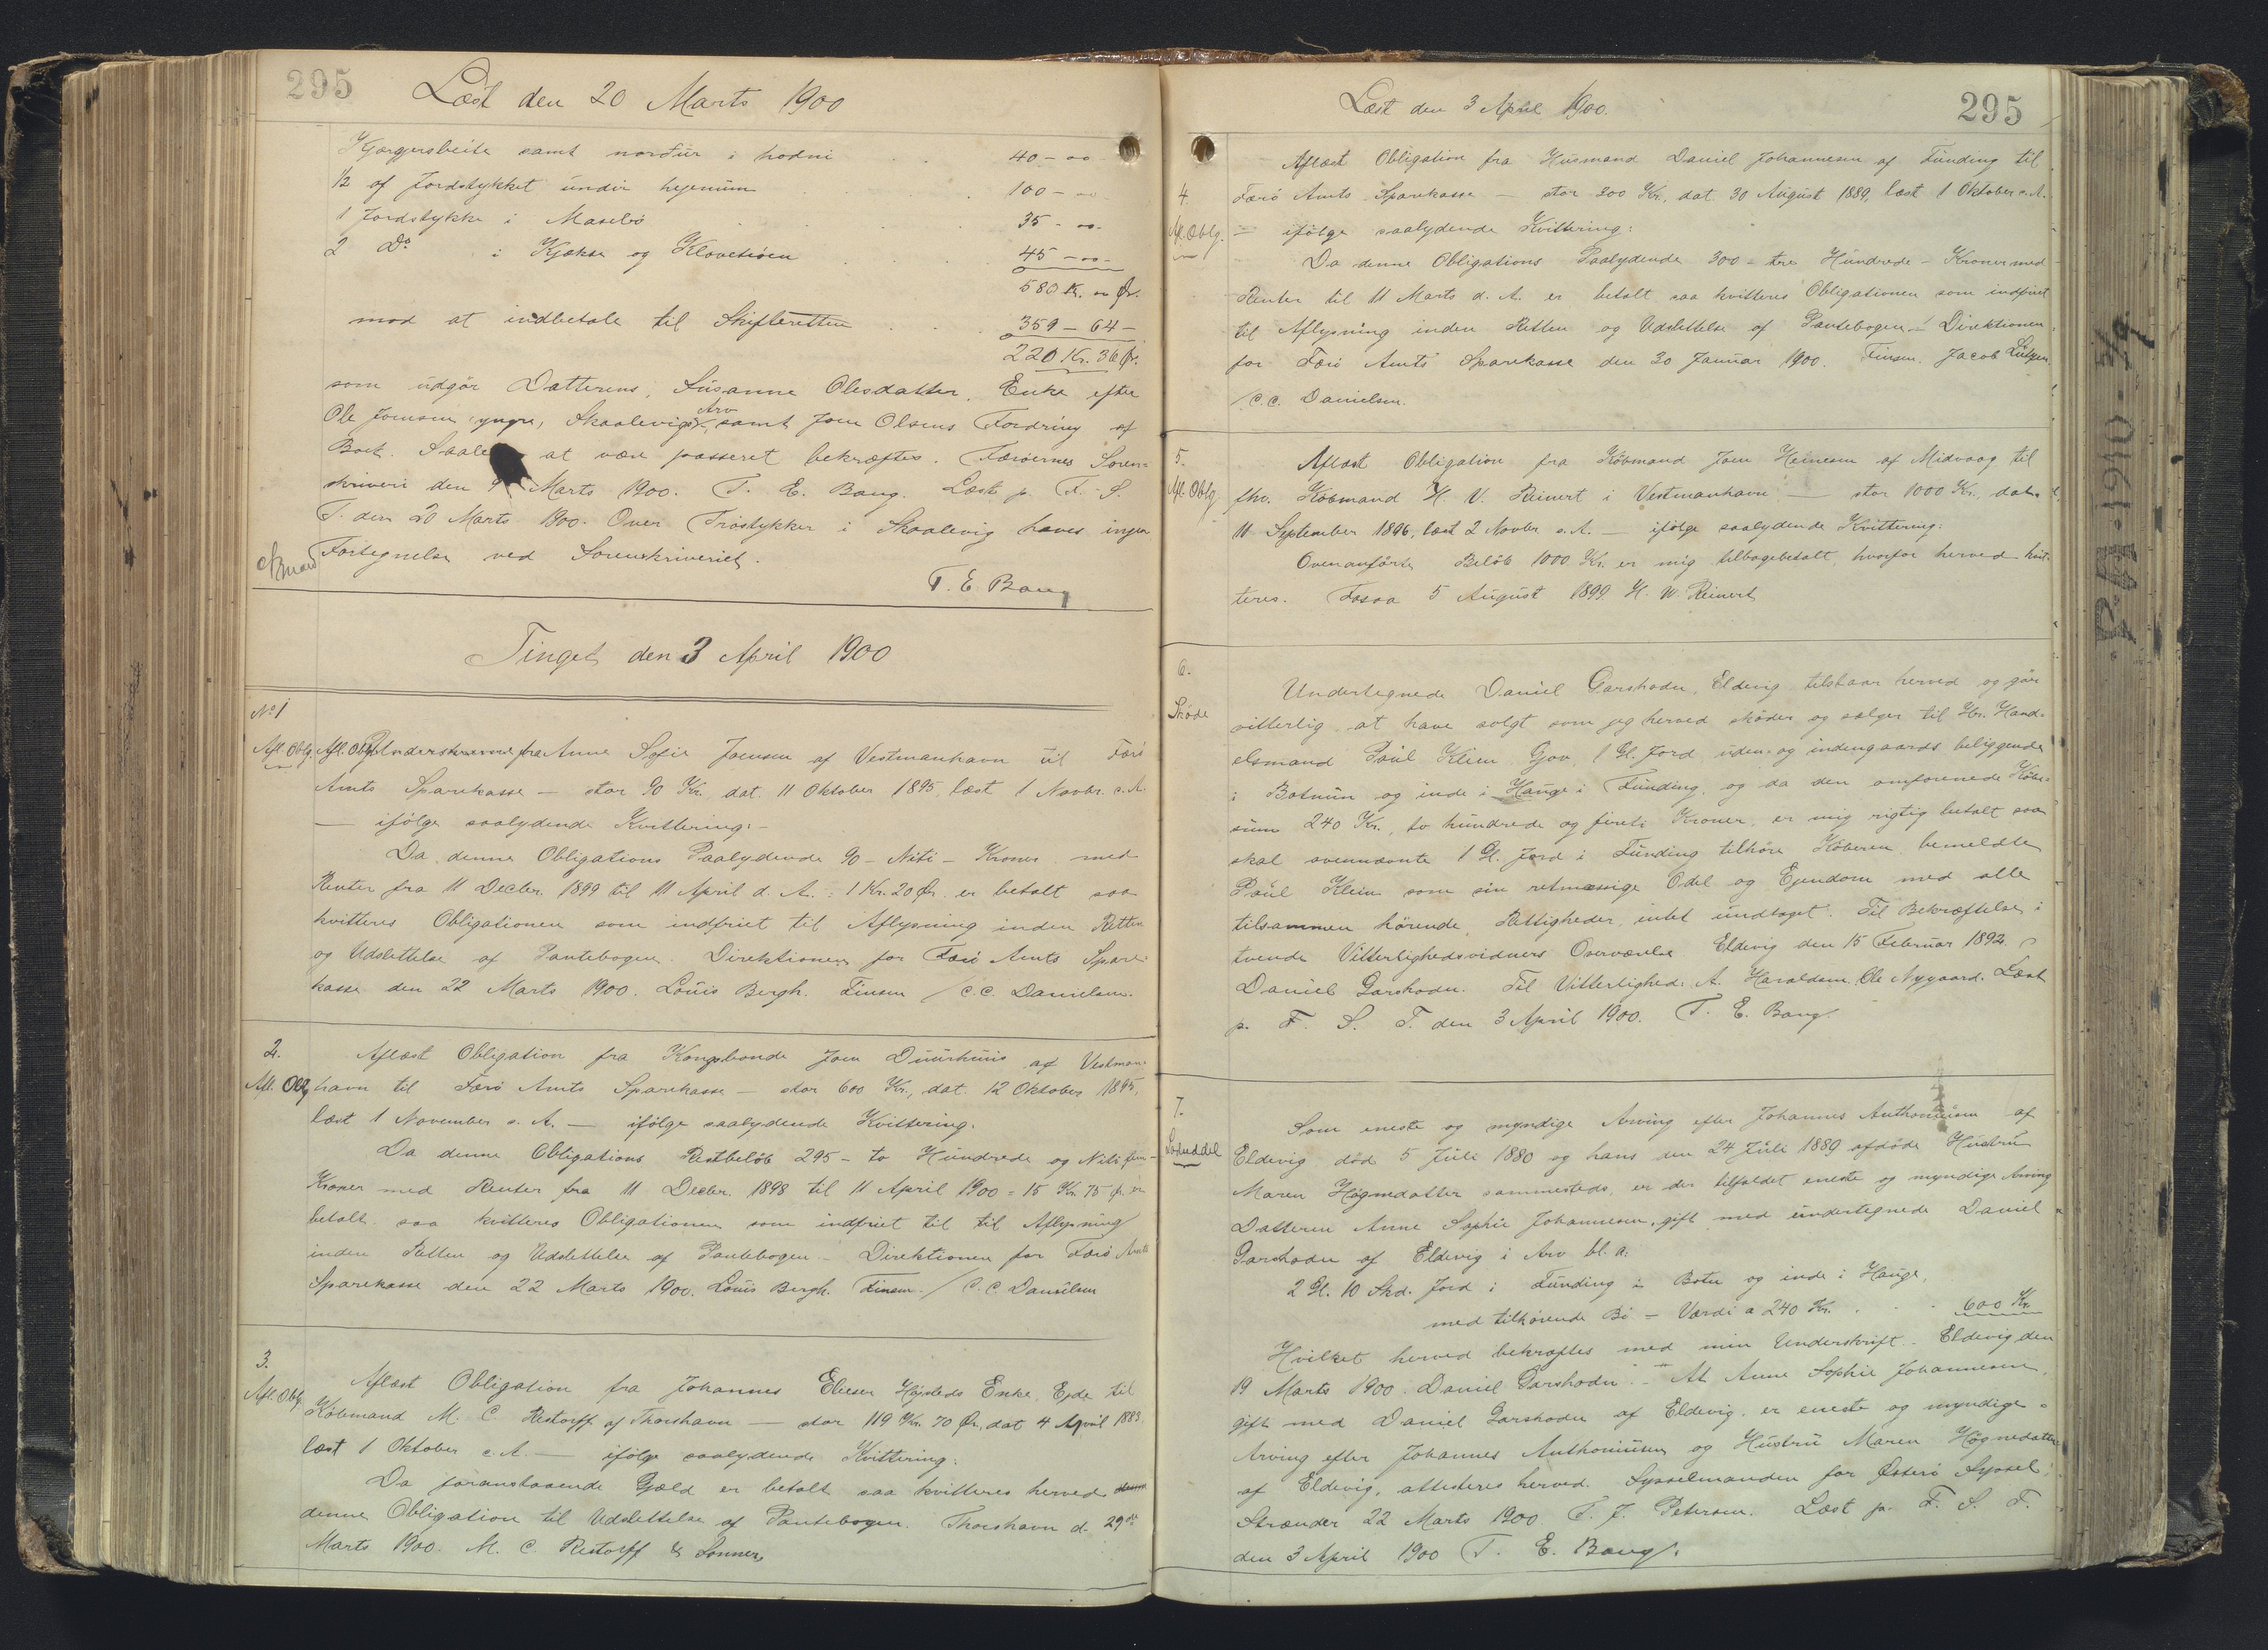 295 Læst den 20 Marts 1900
Kjørgersbeite samt nordúr i hodni . . 40 - "
1/2 af Jordstykket undir hejenum . . 100 - "
1 Jordstykke i Maselið . . . 35 - "
2 Do i Kjøkse og . . . 45 - "
580 Kr. " Ør.
mod at indbetale til Skifteretten . . . 359 - 64 -
220 Kr. 36 Ør.
som udgör Datterens, Susanne Olesdatter, Enke efter
Ole Joensen, yngre, Skaalevigs Arv, samt Joen Olsens Fordring af
Boet. Saale at være passeret bekræftes. Færøernes Soren-
skriveri den 9 Marts 1900. T. E. Bang. Læst p. F. S.
T. den 20 Marts 1900. Over Tröstykker i Skaalevig haves ingen
Fortegnelse ved Sorenskriveriet.
T. E. Bang
Tinget den 3 April 1900
No 1
Afl. Oblg. Afl. Oblg. Underskrevne fra Anne Sofie Joensen af Vestmanhavn til Færö
Amts Sparekasse — stor 90 Kr. dat. 11 Oktober 1895, læst 1 Novbr. s. A.
— ifölge saalydende Kvittering:-
Da denne Obligations Paalydende 90 - Niti - Kroner med
Renter fra 11 Decbr. 1899 til 11 April d. A. : 1 Kr. 20 Ør. er betalt saa
kvitteres Obligationen som indfriet til Aflysning inden Retten
og Udslettelse af Pantebogen. Direktionen for Færö Amts Spare-
kasse den 22 Marts 1900. Louis Bergh. Finsen / C. C. Danielsen.
2.
Afl. Oblg.
Aflæst Obligation fra Kongsbonde Joen Duurhuus af Vestman-
havn til Færö Amts Sparekasse — stor 600 Kr., dat. 12 Oktober 1895,
læst 1 November s. A. — ifölge saalydende Kvittering.
Da denne Obligations Restbelöb 295 - to Hundrede og Niti fem -
Kroner med Renter fra 11 Decbr. 1898 til 11 April 1900 = 15 Kr. 75 Ør. er
betalt saa kvitteres Obligationen som indfriet til til Aflysning
inden Retten og Udslettelse af Pantebogen. - Direktionen for Færö Amts
Sparekasse den 22 Marts 1900. Louis Bergh. Finsen. / C. C. Danielsen
3.
Afl. Oblg.
Aflæst Obligation fra Johannes Elieser Højsteds Enke, Ejde til
Köbmand M. C. Restorff af Thorshavn — stor 119 Kr. 70 Ør., dat 4 April 1883
læst 1 Oktober s. A. — ifölge saalydende Kvittering:
Da foranstaaende Gjæld er betalt saa kvitteres herved
denne Obligation til Udslettelse af Pantebogen. Thorshavn d. 29de
Marts 1900. M. C. Restorff & Sönner
Læst den 3 April 1900. 295
4.
Afl. Oblg.
Aflæst Obligation fra Husmand Daniel Johannesen af Funding til
Færö Amts Sparekasse — stor 300 Kr., dat 30 August 1889, læst 1 Oktober s. A.
- ifölge saalydende Kvittering:
Da denne Obligations Paalydende 300 - tre Hundrede - Kroner med
Renter til 11 Marts d. A. er betalt saa kvitteres Obligationen som indfriet
til Aflysning inden Retten og Udslettelse af Pantebogen. - Direktionen
for Færö Amts Sparekasse den 30 Januar 1900. Finsen. Jacob Lützen
/ C. C. Danielsen.
5.
Afl. Oblg
Aflæst Obligation fra Köbmand Joen Heinesen af Midvaag til
fhv. Köbmand H. V. Reinert i Vestmanhavn — stor 1000 Kr., dat.
11 September 1896, læst 2 Novbr s. A. — ifölge saalydende Kvittering:
Ovenanförte Belöb 1000 Kr. er mig tilbagebetalt, hvorfor herved kvit-
teres. Fosaa 5 August 1899 H. W. Reinert
6.
Sköde
Undertegnede Daniel Garshodn, Eldevig tilstaar herved og gör
vitterlig at have solgt som jeg herved sköder og sælger til Hr. Hand-
elsmand Poul Klein Gjov, 1 Gl. Jord uden- og indengaards beliggende
i Botnun og inde i Hauge i Funding, og da den omforenede Köbe-
sum 240 Kr., to hundrede og fireti Kroner, er mig rigtig betalt saa
skal ovennævnte 1 Gl. Jord i Funding tilhöre Köberen bemeldte
Poul Klein som sin retmæssige Odel og Ejendom med alle
tilsammen hörende Rettigheder, intet undtaget. Til Bekræftelse i
tvende Vitterlighedsvidners Overværelse. Eldevig den 15 Februar 1892.
Daniel Garshodn. Til Vitterlighed: A. Haraldsen. Ole Nygaard. Læst
p. F. S. T. den 3 April 1900. T. E. Bang.
7.
Som eneste og myndige Arving efter Johannes Anthoniusen af
Eldevig död 5 Juli 1880 og hans den 24 Juli 1889 afdöde Hustru
Maren Högnedatter sammesteds, er der tilfaldet eneste og myndige Arving
Datteren Anne Sophie Johannesen, gift med undertegnede Daniel
Garshodn af Eldevig i Arv bl. a:
2 Gl. 10 Skd. Jord i Funding i Botn og inde i Hauge,
med tilhörende Bö - Værdi a 240 Kr. . . . 600 Kr.
Hvilket herved bekræftes med min Underskrift. Eldevig den
19 Marts 1900. Daniel Garshodn. - At Anne Sophie Johannesen
gift med Daniel Garshodn af Eldevig, er eneste og myndige
Arving efter Johannes Anthoniusen og Hustru Maren Högnedatter
af Eldevig, attesteres herved. Sysselmanden for Østerö Syssel,
Strænder 22 Marts 1900. T. J. Petersen. Læst p. F. S. T.
den 3 April 1900 T. E. Bang.